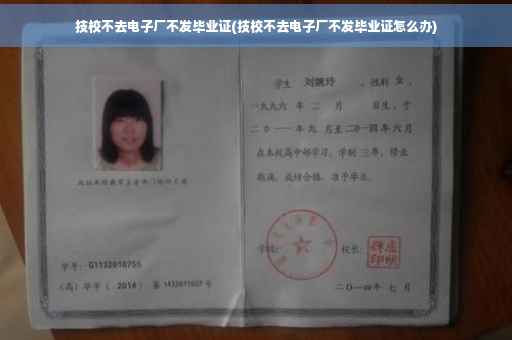 技校不去电子厂不发毕业证(技校不去电子厂不发毕业证怎么办)
学生 刘婉玲 ，性别 女 ，
一九九六 年 二 月 日生，于
二〇一一 年 九 月至 二〇一四 年 六 月
在本校高中部学习，学制 三 年，修业
期满，成绩合格，准予毕业。
学号： G1132010755
(高) 毕字 ( 2014 ) 第 1432011037 号
学校：
校长：
二〇一四年 七 月